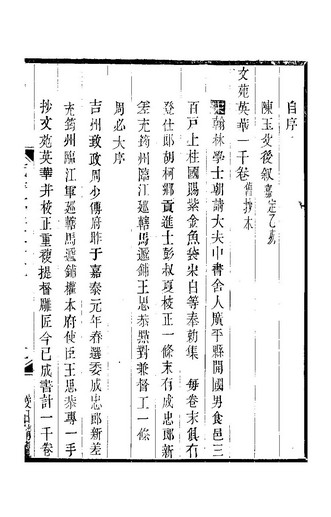 自序
陳玉父後叙嘉定乙亥
文苑英華一千卷舊抄本
宋翰林學士朝請大夫中書舍人廣平縣開國男食邑三
百戸上柱國賜紫金魚袋宋白等奉勅集 每卷末俱有
登仕郎胡柯鄉貢進士彭叔夏校正一條末有成忠郎新
差充筠州臨江巡轄馬遞鋪王思恭點對兼督工一條
周必大序
吉州致政周少傅府昨于嘉泰元年春選委成忠郎新差
充筠州臨江軍巡轄馬遞鋪權本府使臣王思恭專一手
抄文苑英華并校正重複提督雕匠今已成書計一千卷